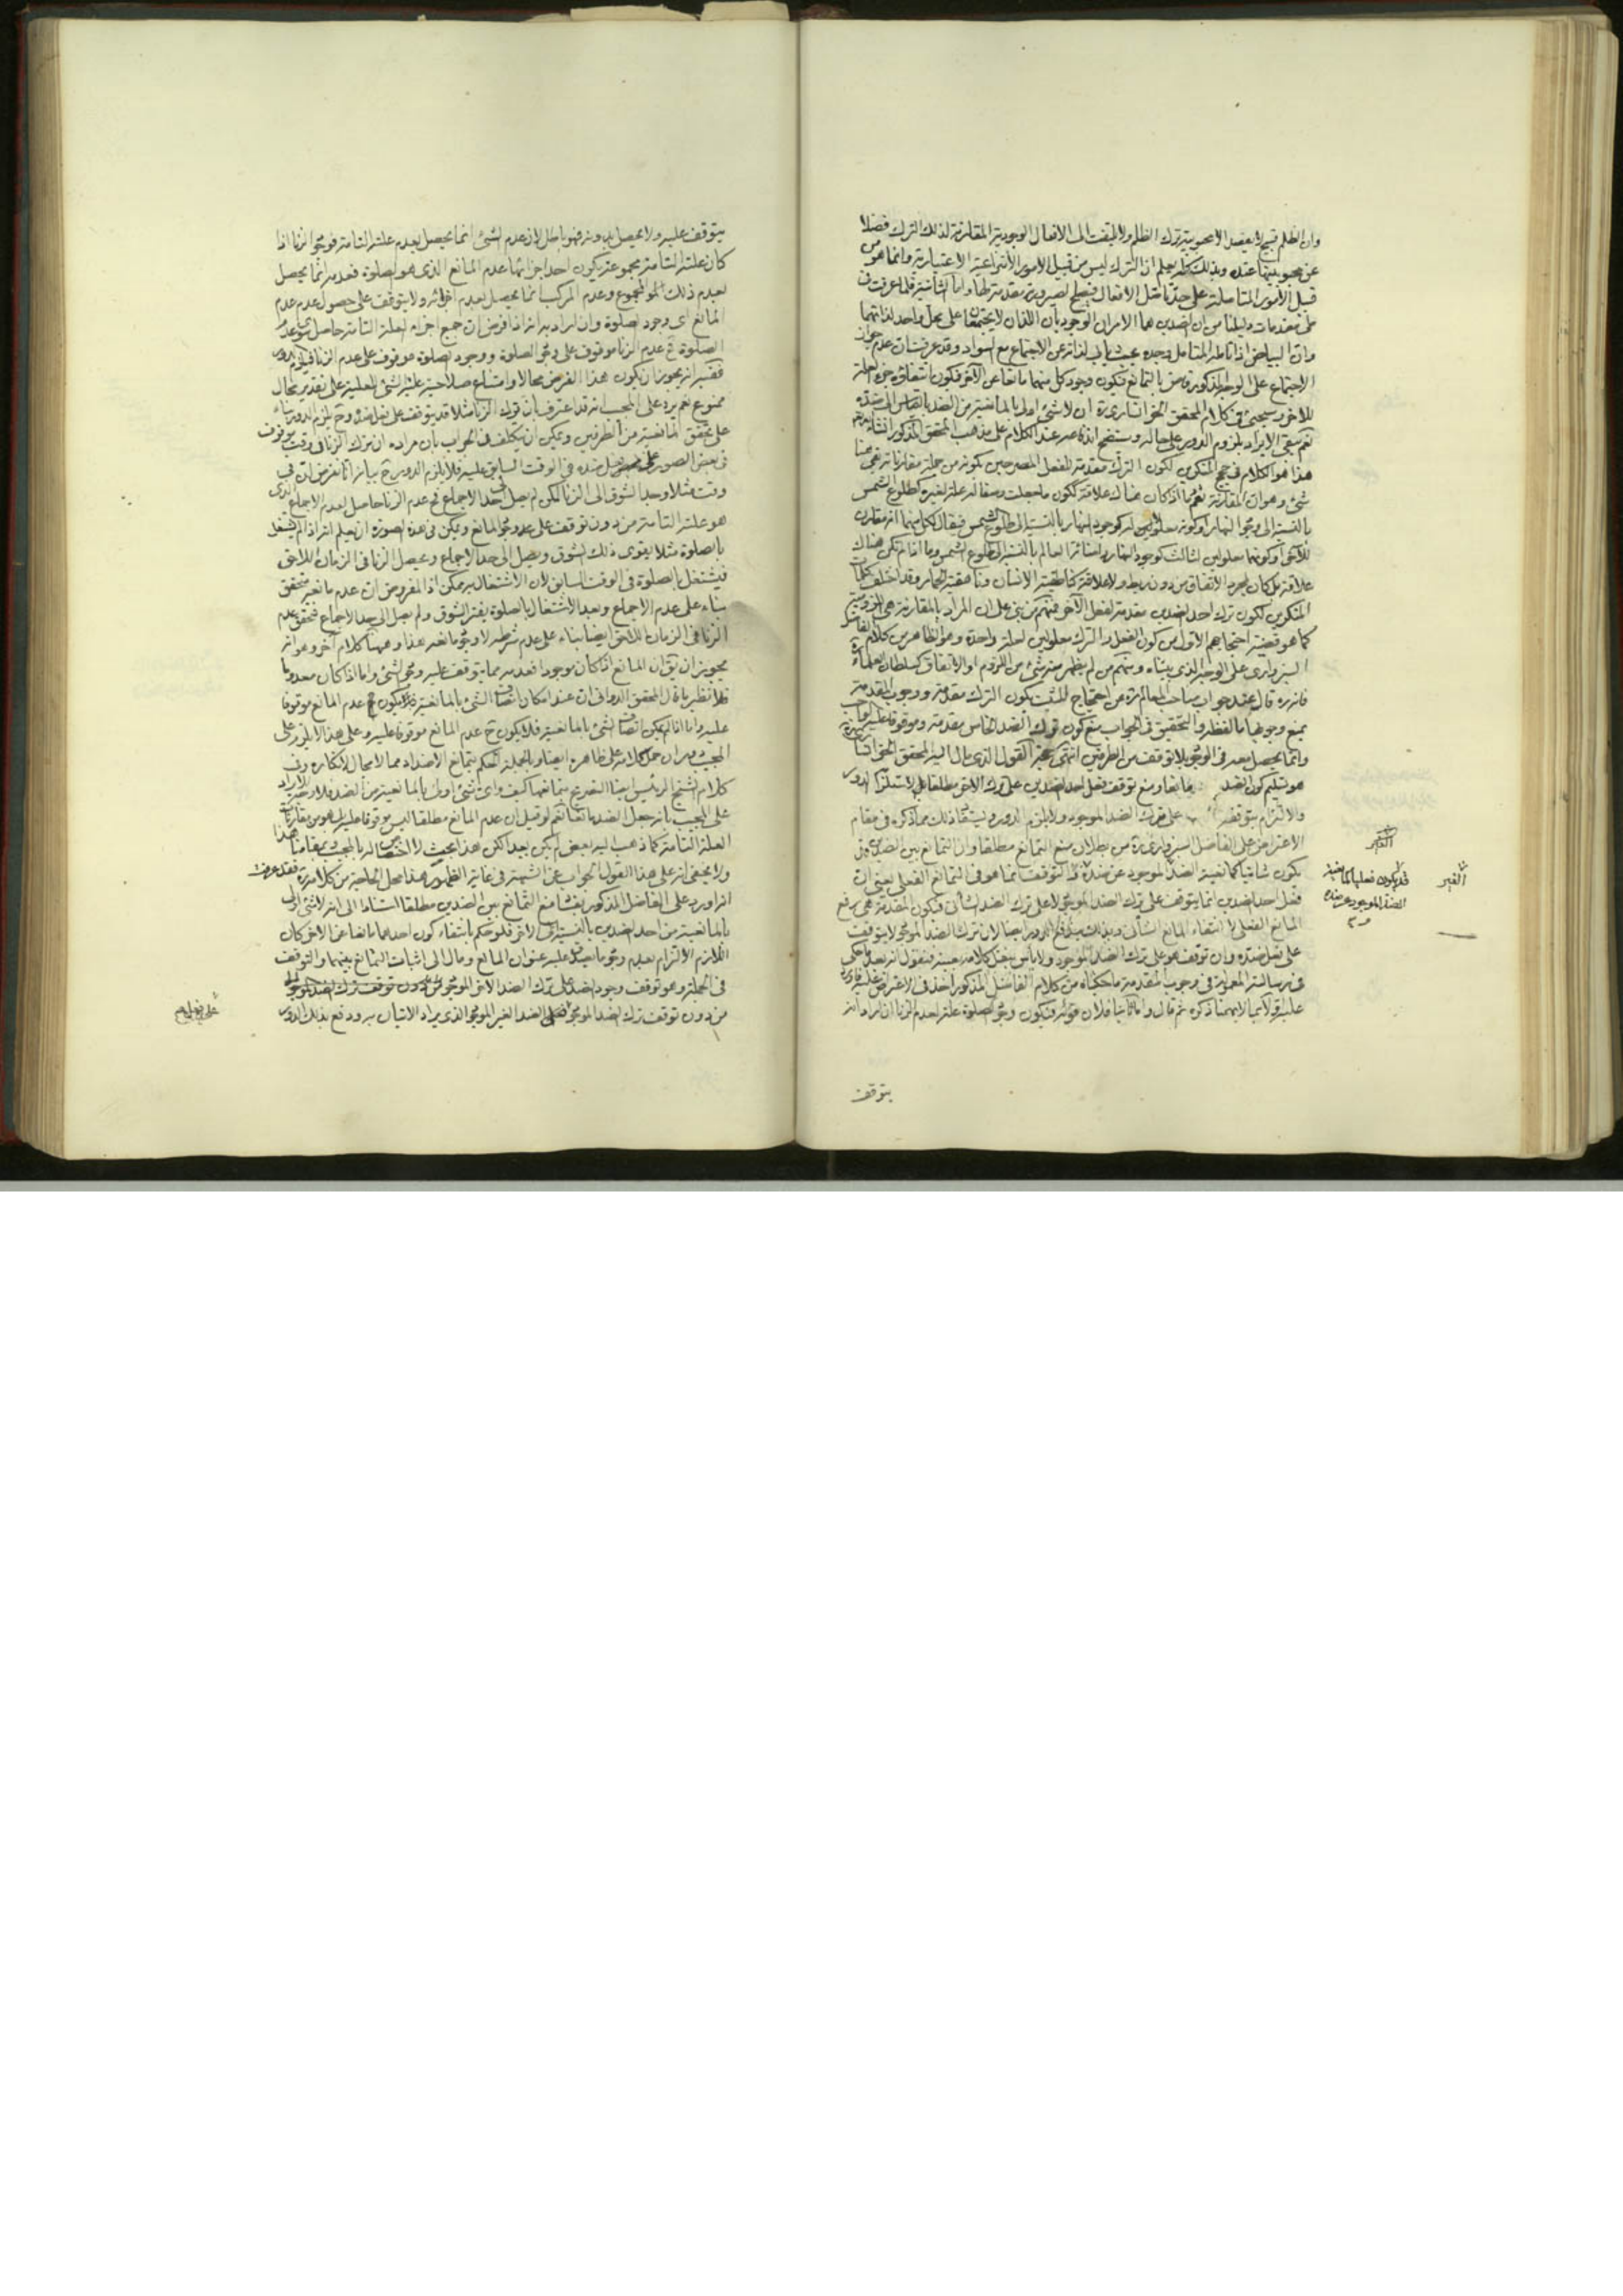 وان الظلم قبيح لا يقصد الا محبوبية ترك الظلم ولا يلتفت الى الافعال الوجودية المقارنة لذلك الترك فضلا
عن محبوبيتها عنده وبذلك يعلم ان الترك ليس من قبيل الامور الانتزاعية الاعتبارية وانما هو من
قبيل الامور المتاصلة على حد يصلح لصيرورته مقدمة لها واما الثانية فلما عرفت في
طي مقدمات دليلنا من ان الضدين هما الامران الوجوديان اللذان لا يجتمعان على محل واحد لذاتهما
وان البياض اذا لاحظه المتامل وجده بحيث يابى لذاته عن الاجتماع مع السواد وقد عرفت ان عدم جواز
الاجتماع على الوجه المذكور بالتمانع فيكون وجود كل منهما مانعا عن الآخر فيكون انتفاؤه جزء العلة
للآخر وسيجيئ في كلام المحقق الخوانساري ره ان لا شيء اولى بالمانعية من الضد بالقياس الى ضده
نعم يبقى الايراد بلزوم الدور على حاله وستتضح اندفاعه عند الكلام على مذهب المحقق المذكور انشاء الله تعالى
هذا هو الكلام في حجج المنكرين لكون الترك مقدمة للفعل المصرحين بكونه من جملة مقارناته بقي هنا
شيء وهو ان المقارنة تعم ما اذا كان هناك علاقة ككون ما جعلت وصفا له علة لغيره كطلوع الشمس
بالنسبة الى وجود النهار او كونه معلولا له كوجود النهار بالنسبة الى طلوع الشمس فيقال لكل منهما انه مقارن
للآخر او كونهما معلولين لثالث كوجود النهار واضائة العالم بالنسبة الى طلوع الشمس وما اذا لم تكن هناك
علاقة بل كان بمجرد الاتفاق من دون ربط ولا علاقة كناطقية الانسان وناهقية الحمار وقد اختلف كلمات
المنكرين لكون ترك احد الضدين مقدمة لفعل الآخر فمنهم من بنى على ان المراد بالمقارنة هي اللزومية
كما هو قضية احتجاجهم الاول من كون الفعل والترك معلولين لعلة واحدة وهو الظاهر من كلام الفاضل
السبزواري على الوجه الذي بيناه ومنهم من لم يظهر منه شيء من اللزوم او الاتفاق كسلطان العلماء
فانه ره قال عند جواب صاحب المعالم ره عن احتجاج المثبت بكون الترك مقدمة ووجوب المقدمة
بمنع وجوبها ما لفظه والتحقيق في الجواب منع كون ترك الضد الخاص مقدمة وموقوفا عليه للواجب
وانما يحصل معه في الوجود بلا توقف من الطرفين انتهى حجة القول الذي مال اليه المحقق الخوانساري
هو تسليم كون الضد مانعا ومنع توقف فعل احد الضدين على ترك الآخر مطلقا لاستلزامه الدور
والالتزام بتوقفه على ترك الضد الموجود ولا يلزم الدور ويستفاد ذلك مما ذكره في مقام
الاعتراض على الفاضل السبزواري ره من بطلان منع التمانع مطلقا وان التمانع بين الضدين قد
يكون شانيا كمانعية الضد الموجود عن ضده والتوقف انما هو في التمانع الفعلي يعني ان
فعل احد الضدين انما يتوقف على ترك الضد الموجود لا على ترك الضد الشأني فتكون المقدمة هي رفع
المانع الفعلي لا انتفاء المانع الشأني وبذلك يندفع الدور ايضا لان ترك الضد الموجود لا يتوقف
على فعل ضده وان توقف هو على ترك الضد الموجود ولا باس بنقل كلامه بعينه فنقول انه بعد ما حكى
في رسالته المعمولة في وجوب المقدمة ما حكيناه من كلام الفاضل المذكور اخذ في الاعتراض عليه فاورد
عليه اولا بما لا يهمنا ذكره ثم قال واما ثانيا فلان قوله فيكون وجود الصلوة علة لعدم الزنا ان اراد انه
يتوقف
الغير
قد يكون فعليا كمانعية
الضد الموجود عن ضده
الغير
يتوقف عليه ولا يحصل بدونه فهو باطل لان عدم الشئ انما يحصل بعدم علته التامة فوجود الزنا اذا
كان علته التامة مجموعة يكون احد اجزائها عدم المانع الذي هو الصلوة فعدمه انما يحصل
بعدم ذلك المجموع وعدم المركب انما يحصل بعدم اجزائه ولا يتوقف على حصول عدم عدم
المانع اى وجود الصلوة وان اراد به انه اذا فرض ان جميع اجزاء العلة التامة حاصل سوى عدم
الصلوة فح عدم الزنا موقوف على وجود الصلوة ووجود الصلوة موقوف على عدم الزنا فيلزم الدور
ففيه انه يجوز ان يكون هذا الفرض محالا وامتناع صلاحية علية الشئ للعلية على تقدير محال
ممنوع نعم يرد على المجيب انه قد اعترف بان ترك الزنا مثلا قد يتوقف على فعل ضده وح يلزم الدور بناء
على تحقق المانعية من الطرفين ويمكن ان يتكلف في الجواب بان مراده ان ترك الزنا في وقت موقوف
في بعض الصور على فعل ضده في الوقت السابق عليه فلا يلزم الدور ح بيانه انا نفرض ان في
وقت مثلا وجد الشوق الى الزنا لكن لم يصل الى حد الاجماع فح عدم الزنا حاصل لعدم الاجماع الذي
هو علته التامة من دون توقف على وجود المانع ويمكن في هذه الصورة ان يعلم انه اذا لم يشتغل
بالصلوة مثلا يقوى ذلك الشوق ويصل الى حد الاجماع ويحصل الزنا في الزمان اللاحق
فيشتغل بالصلوة في الوقت السابق لان الاشتغال به ممكن اذ المفروض ان عدم مانعه متحقق
بناء على عدم الاجماع وبعد الاشتغال بالصلوة يفتر الشوق ولم يصل الى حد الاجماع فتحقق عدم
الزنا في الزمان اللاحق ايضا بناء على عدم شرطه لا وجود مانعه هذا وههنا كلام آخر وهو انه
يجوز ان يق ان المانع اذا كان موجودا فعدمه مما يتوقف عليه وجود الشئ واما اذا كان معدوما
فلا نظير ما قال المحقق الدواني ان عند امكان اتصاف الشئ بالمانعية يكون عدم المانع موقوفا
عليه واما اذا لم يمكن اتصاف الشئ بالمانعية فلا يكون ح عدم المانع موقوفا عليه وعلى هذا لا يلزم على
المجيب دور ان حمل كلامه على ظاهره ايضا وبالجملة الحكم بتمانع الاضداد مما لا مجال لانكاره وفي
كلام الشيخ الرئيس ايضا التصريح بتمانعها كيف واى شئ اولى بالمانعية من الضد فلا وجه للايراد
على المجيب بانه جعل الضد مانعا نعم لو قيل ان عدم المانع مطلقا ليس موقوفا عليه بل هو من مقارنات
العلة التامة كما ذهب اليه بعض لم يكن بعيدا لكن هذا بحث لا اختصاص له بالمجيب وبمقامنا هذا
ولا يخفى انه على هذا القول الجواب عن الشبهة في غاية الظهور هذا محل الحاجة من كلامه ره فقد عرفت
انه اورد على الفاضل المذكور بفساد منع التمانع بين الضدين مطلقا استنادا الى انه لا شئ اولى
بالمانعية من احد الضدين بالنسبة الى الآخر فلو حكم بانتفاء كون احدهما مانعا عن الآخر كان
اللازم الالتزام بعدم وجود ما يصدق عليه عنوان المانع ومال الى اثبات التمانع بينهما والتوقف
في الجملة وهو توقف وجود الضد على ترك الضد الآخر الموجود من دون توقف ترك الضد الموجود
من دون توقف ترك الضد الموجود على الضد الغير الموجود الذي يراد الاتيان به ودفع بذلك الدور